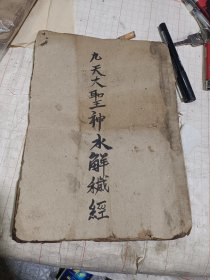 九天大聖神水解穢經